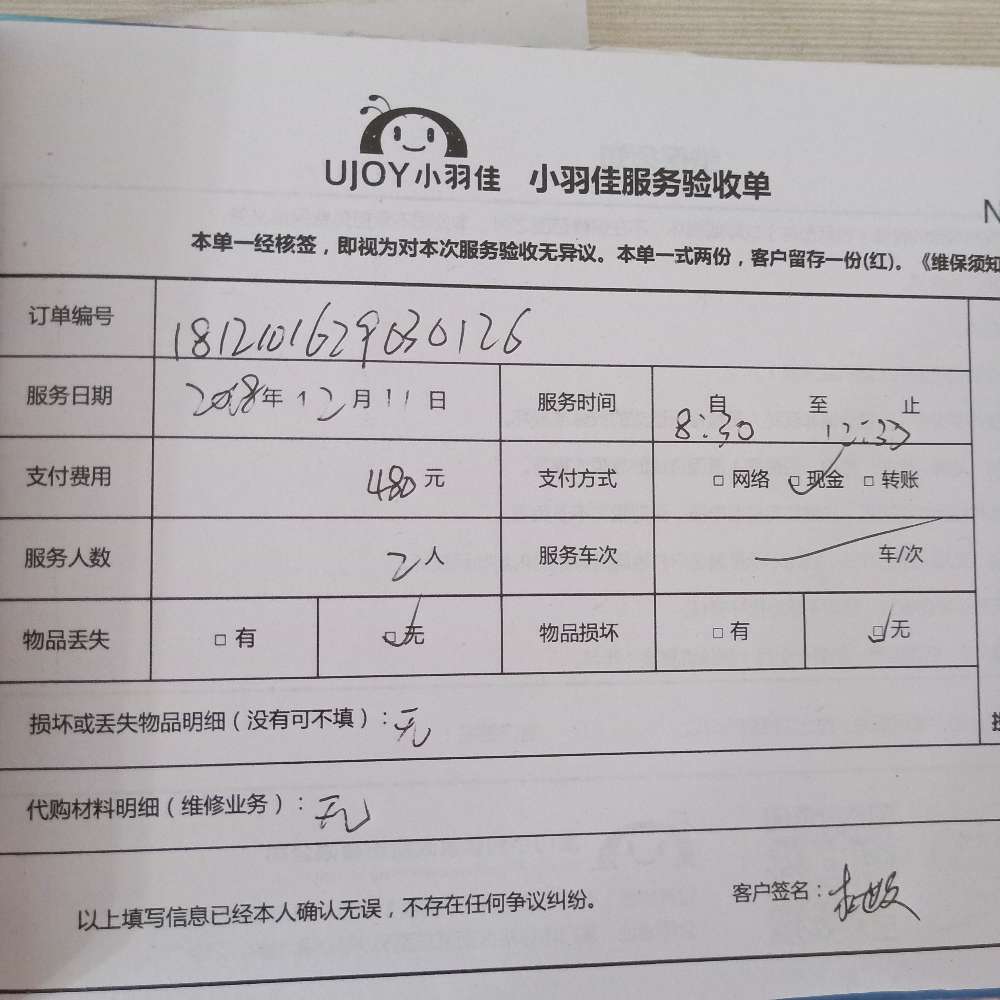 UJOY小羽佳 小羽佳服务验收单
N
本单一经核签，即视为对本次服务验收无异议。本单一式两份，客户留存一份(红)。《维保须知
订单编号 1812101629030126
服务日期 2018年12月11日 服务时间 自 至 止
8:30 12:30
支付费用 480元 支付方式 □ 网络 □ 现金 □ 转账
服务人数 2人 服务车次 车/次
物品丢失 □ 有 □ 无 物品损坏 □ 有 □ 无
损坏或丢失物品明细（没有可不填）：无
代购材料明细（维修业务）：无
以上填写信息已经本人确认无误，不存在任何争议纠纷。 客户签名：